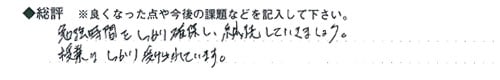 ◆総評 ※良くなった点や今後の課題などを記入して下さい。
勉強時間をしっかり確保し、継続していきましょう。
授業はしっかり受けられています。